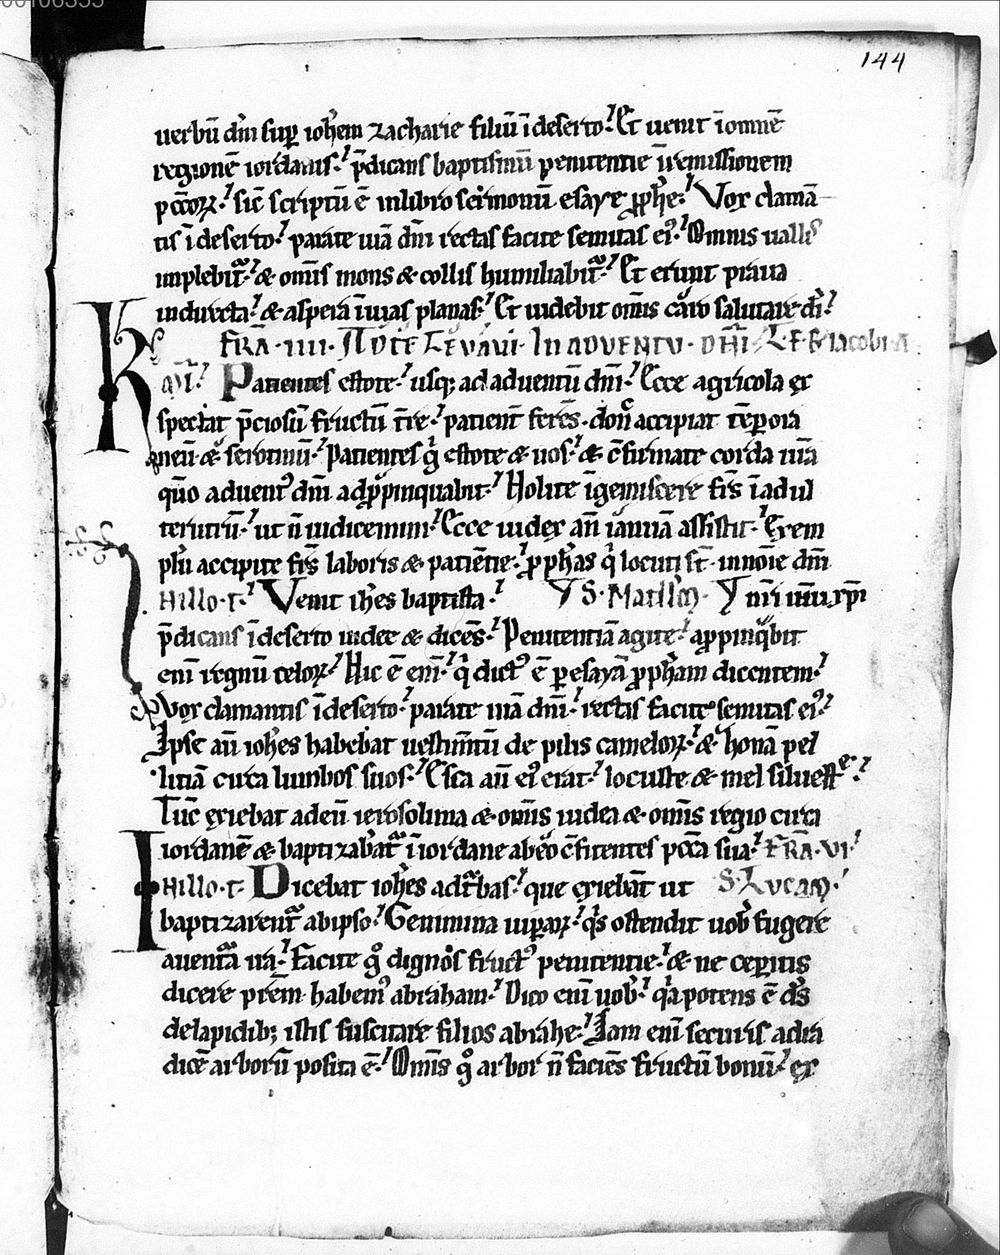 144
uerbū dn̄i sup̄ ioh̄em zacharie filiū ī deserto. Et uenit ī omnē
regionē iordanis. p̄dicans baptismū penitentie ī remissionem
pc̄c̄orꝝ. sic̄ scriptū ē in libro sermonū esaye ꝓph̄e. Vox clamā
tis ī deserto. parate uiā dn̄i rectas facite semitas eiꝰ. Omnis uallis
implebit̄. & om̄is mons & collis humiliabit̄. Et erunt praua
in directa. & aspera ī uias planas. Et uidebit om̄is caro salutare dī.
FR̄A IIII
Patientes estote. usq; ad aduentū dn̄i. Ecce agricola ex
spectat p̄ciosū fructū tr̄e. patient̄ ferēs. donec accipiat tēporā
neū & serotinū. Patientes g̊ estote & uos. & c̄firmate corda ur̄a
qm̄ aduentꝰ dn̄i adꝓpinquabit. Nolite īgemiscere fr̄s ī adul
terutrū. ut n̄ iudicemini. Ecce iudex an̄ ianuā assistit. Exem
plū accipite fr̄s laboris & patientie. ꝓph̄as q̄ locuti st̄ in noīe dn̄i
IN ILLO T. Venit ioh̄es baptista. S. Math̄m
p̄dicans ī deserto iudee & dicēs. Penitentiā agite. appinq̄bit
eni regnū celorꝝ. Hic ē eni. q̄ dictꝰ ē p̄ esayā ꝓph̄am dicentem.
Vox clamantis ī deserto. parate uiā dn̄i. rectas facite semitas eiꝰ.
Ipse au̅ ioh̄es habebat uestim̄tū de pilis camelorꝝ. & zonā pel
liciā circa lumbos suos. Esca au̅ eiꝰ erat. locuste & mel siluestre.
Tūc exiebat ad eū ierosolima & om̄is iudea & om̄is regio circa
iordanē & baptizabāt̄ ī iordane ab eo c̄fitentes pc̄c̄a sua. FR̄A VI
IN ILLO T. Dicebat ioh̄es ad t̄bas. que exiebāt ut S. Lucam.
baptizarent̄ ab ipso. Genimina uiparꝝ. q̄s ostendit uob̄ fugere
a uentura ira. Facite g̊ dignos fructꝰ penitentie. & ne ceperitis
dicere pr̄em habemꝰ abraham. Dico eni uob̄. q̄a potens ē ds̄
de lapidib; istis suscitare filios abrahe. Iam eni securis ad ra
dicē arborū posita ē. Om̄is g̊ arbor n̄ faciēs fructū bonū. ex